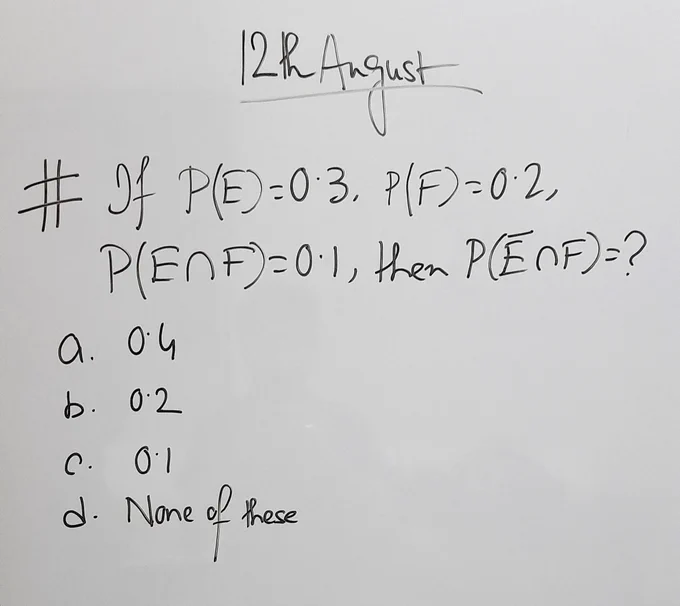 12th August
# If P(E)=0·3, P(F)=0·2,
P(E∩F)=0·1, then P(E̅∩F)=?
a. 0·4
b. 0·2
c. 0·1
d. None of these